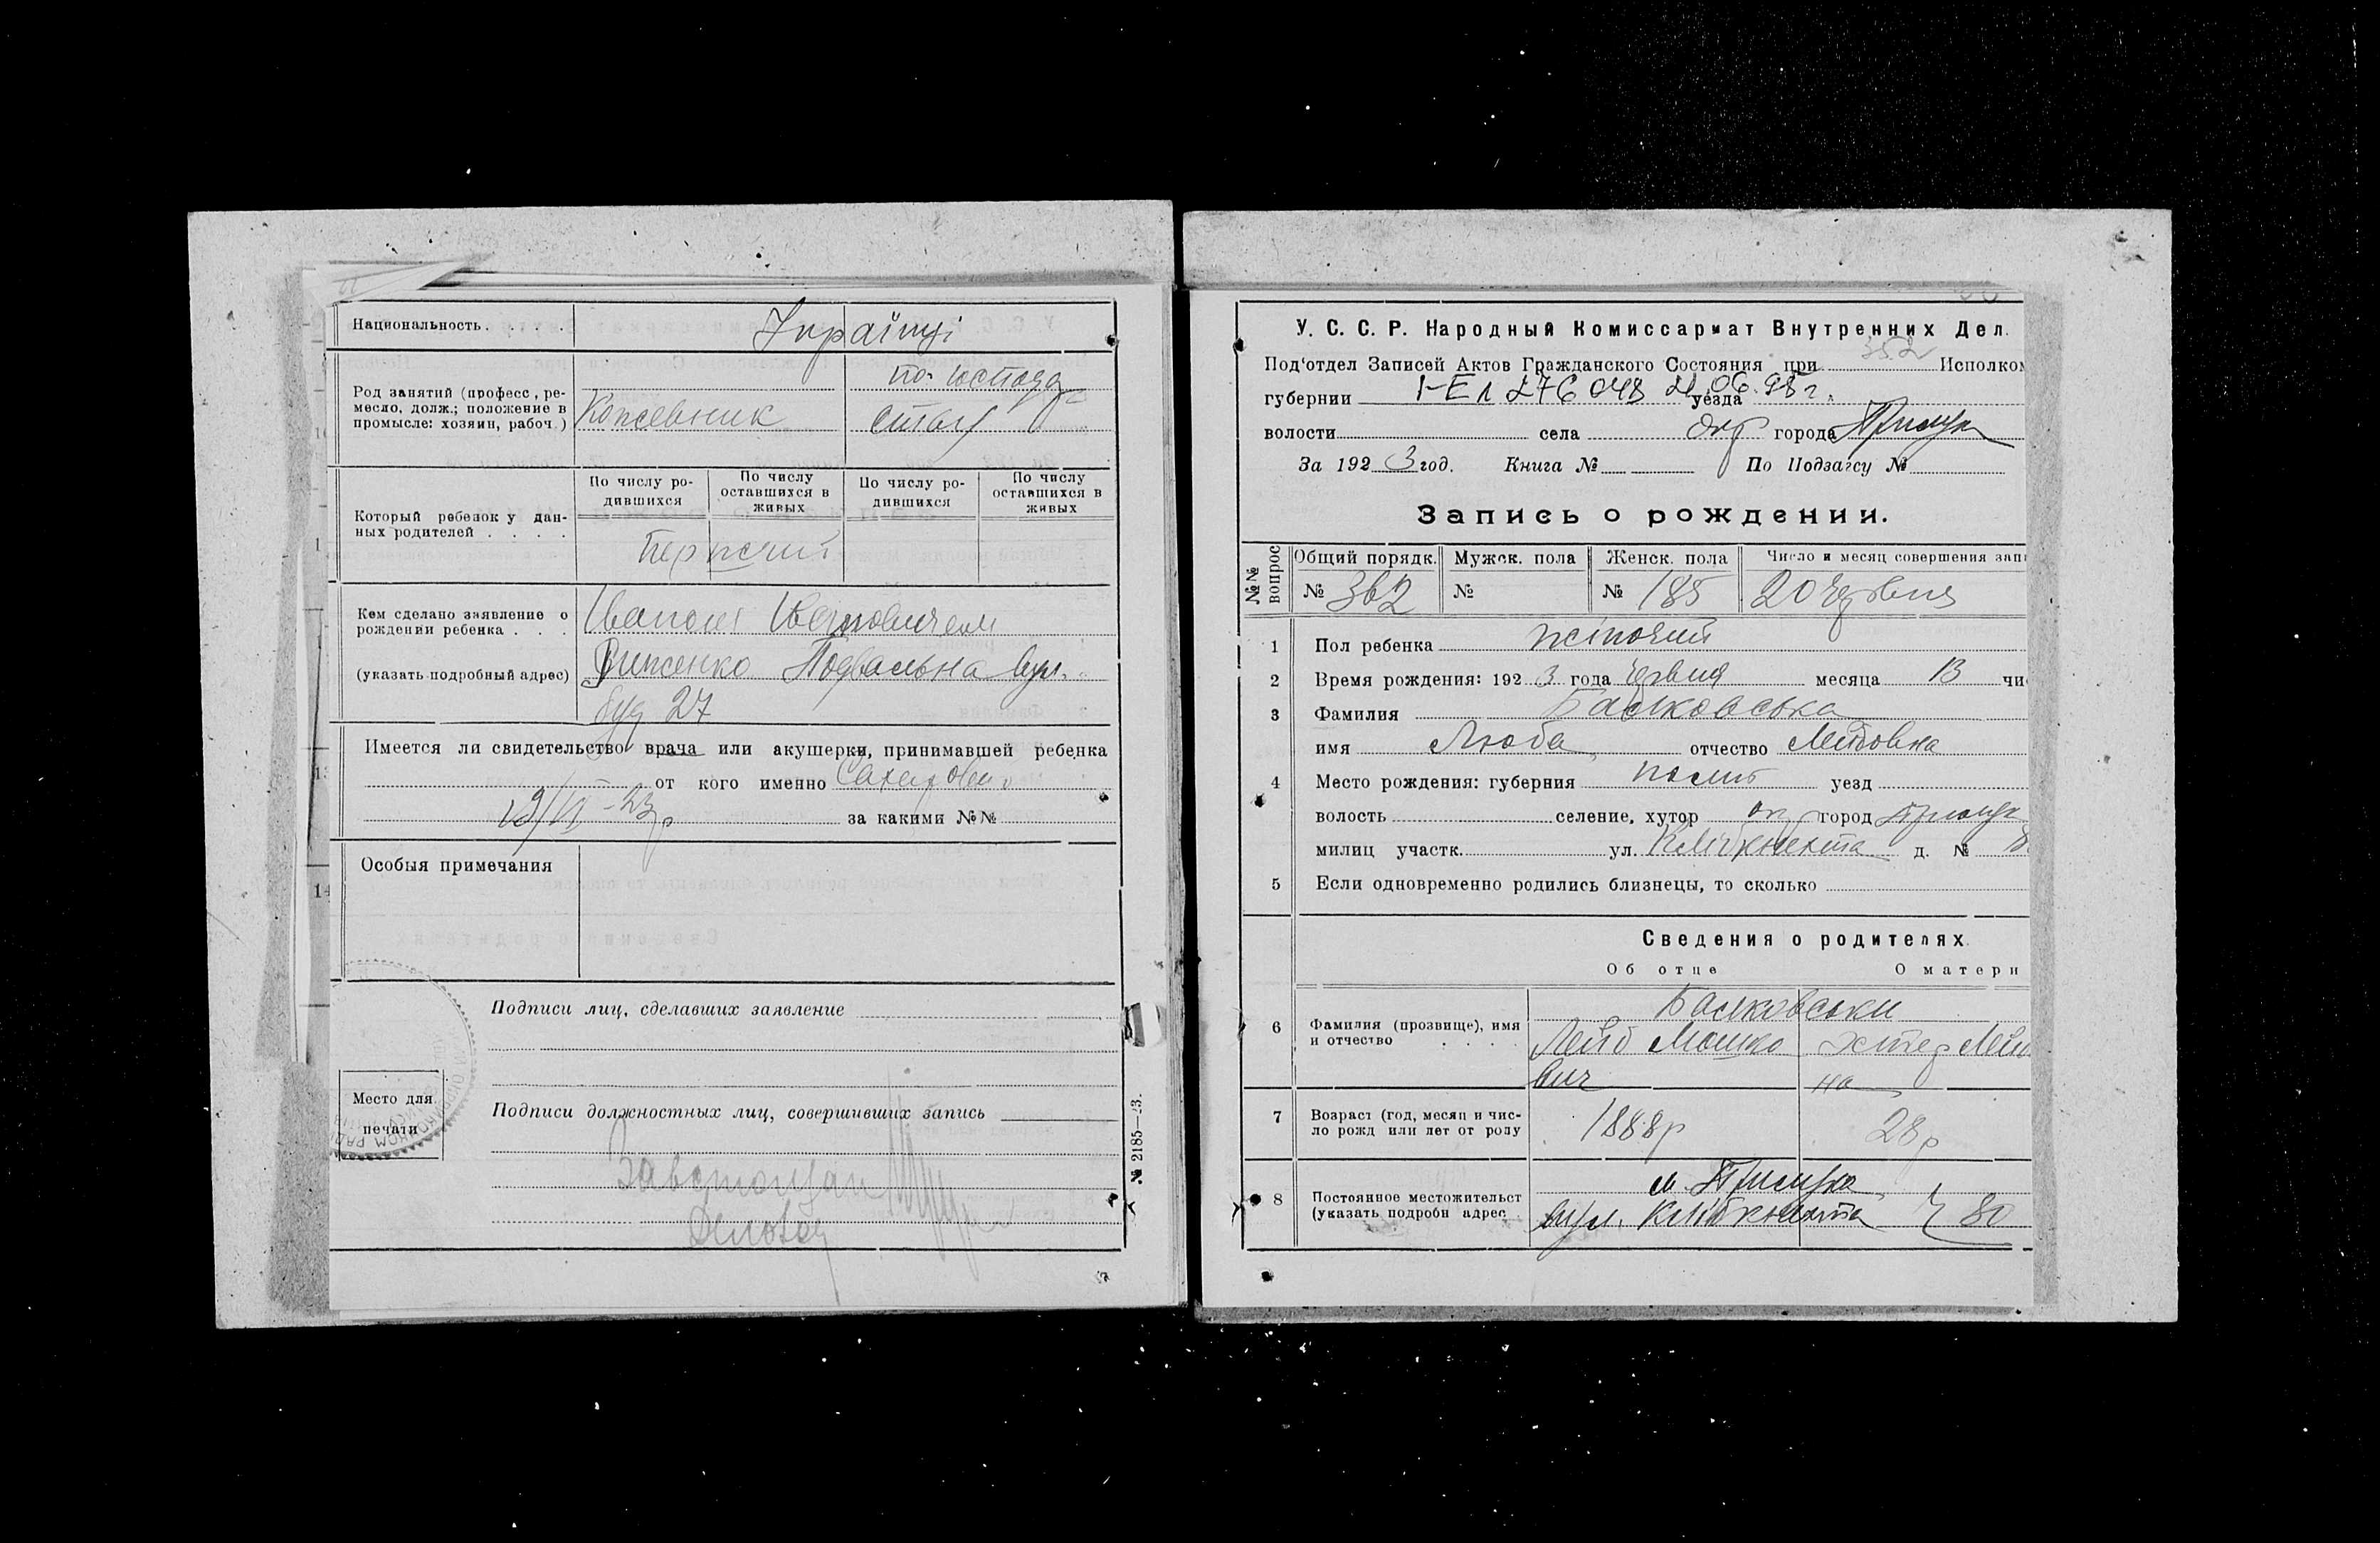 Национальность. . . .
Українці
Род занятий (професс, ре-
месло, долж.; положение в
промысле: хозяин, рабоч)
Кожевник
по
Который ребенок у дан-
ных родителей . . . .
По числу ро-
дившихся
По числу
оставшихся в
живых
По числу ро-
дившихся
По числу
оставшихся в
живых
Кем сделано заявление о
рождении ребенка . . .
(указать подробный адрес)
Иваном Ивановичем
Подвальна вул.
буд 27
Имеется ли свидетельство врача или акушерки, принимавшей ребенка
от кого именно
19/VI – 23р за какими №№
Особыя примечания
Подписи лиц, сделавших заявление
Место для
печати
Подписи должностных лиц, совершивших запись
№ 2185—23.
У. С. С. Р. Народный Комиссариат Внутренних Дел.
Под'отдел Записей Актов Гражданского Состояния при 352 Исполком
губернии I-ЕЛ 276048 уезда 21.06.98г.
волости села окр города Прилуки
За 1923 год. Книга № По Подзагсу №
Запись о рождении.
№№ вопрос
Общий порядк.
Мужск. пола
Женск. пола
Число и месяц совершения запи
№ 362
№
№ 185
20 червня
1 Пол ребенка жіночий
2 Время рождения: 1923 года червня месяца 13 чи
3 Фамилия Баліковська
имя Люба отчество Лейбовна
4 Место рождения: губерния уезд
волость селение, хутор окр город Прилуки
милиц участк. ул. К Лібкнехта д. № 8
5 Если одновременно родились близнецы, то сколько
Сведения о родителях.
Об отце
О матери
6 Фамилия (прозвище), имя
и отчество . . . .
Лейб Мошко
вич
Эстер
на
7 Возраст (год, месяц и чис-
ло рожд или лет от роду
1888р
28р
8 Постоянное местожительст
(указать подробн адрес
м. Прилука
вул. К Лібкнехта ч 80